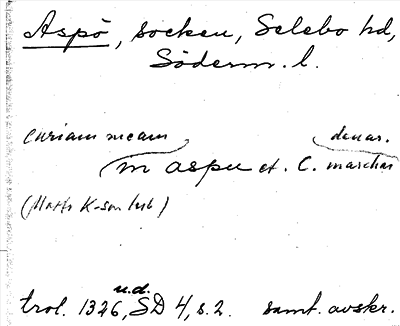 Aspö, socken, Selebo hd,
Söderm. l.
curiam meam denar.
in aspu et. C. marchas
(Matts K-son
u.d.
trol. 1326, SD 4, s. 2. samt. avskr.